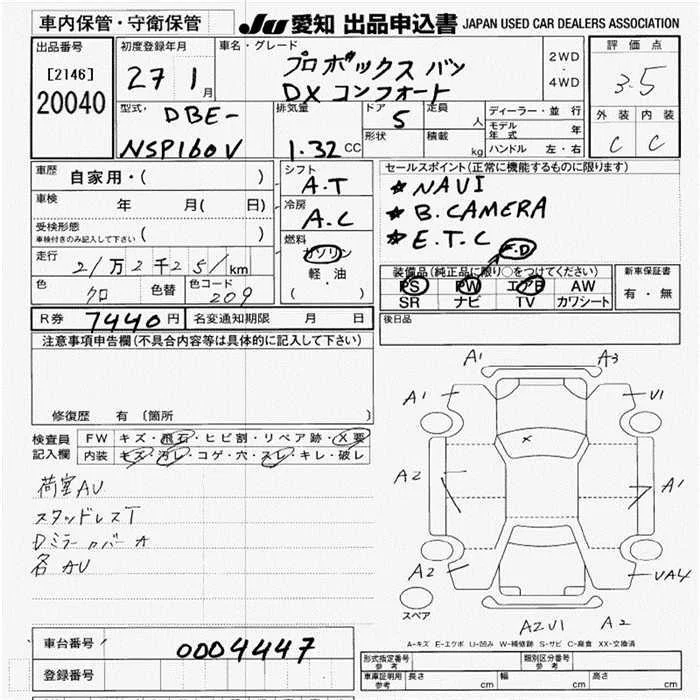 車内保管・守衛保管
JU 愛知 出品申込書 JAPAN USED CAR DEALERS ASSOCIATION
出品番号 [2146] 20040
初度登録年月 27 1 月
車名・グレード プロボックス バン DX コンフォート
2WD ・ 4WD
評価点 3.5
外装 内装
C C
型式・ DBE-
NSP160V
排気量 1.32 CC
ドア 5
定員 人
形状 積載 kg
ディーラー・並行
モデル年式 年
ハンドル 左・右
車歴 自家用・( )
車検 年 月( 日)
受検形態 ( )
車検付きのみ記入して下さい
走行 2/万2千25/km
色 クロ 色替 色コード 209
シフト A.T
冷房 A.C
燃料 ガソリン
軽・油
( ・ )
セールスポイント(正常に機能するものに限ります)
★NAVI
★B.CAMERA
★E.T.C
F.D
装備品(純正品に限り○をつけてください)
PS PW エアB AW
SR ナビ TV カワシート
新車保証書
有・無
R券 7440円 名変通知期限 月 日
後日品
注意事項申告欄(不具合内容等は具体的に記入して下さい)
修復歴 有〔箇所 〕
検査員記入欄
FW キズ・飛石・ヒビ割・リペア跡・X要
内装 キズ・汚レ・コゲ・穴・スレ・キレ・破レ
荷室AU
スタッドレスT
Dミラーカバー A
各AU
A1 A3
A1 U1
A2 A1
A2 UA4
スペア
A2U1 A2
A-キズ E-エクボ U-凹み W-補修跡 S-サビ C-腐食 XX-交換済
車台番号 0004447
登録番号
形式指定番号 参考
類別区分番号 参考
車庫証明用 参考 長さ cm 幅 cm 高さ cm